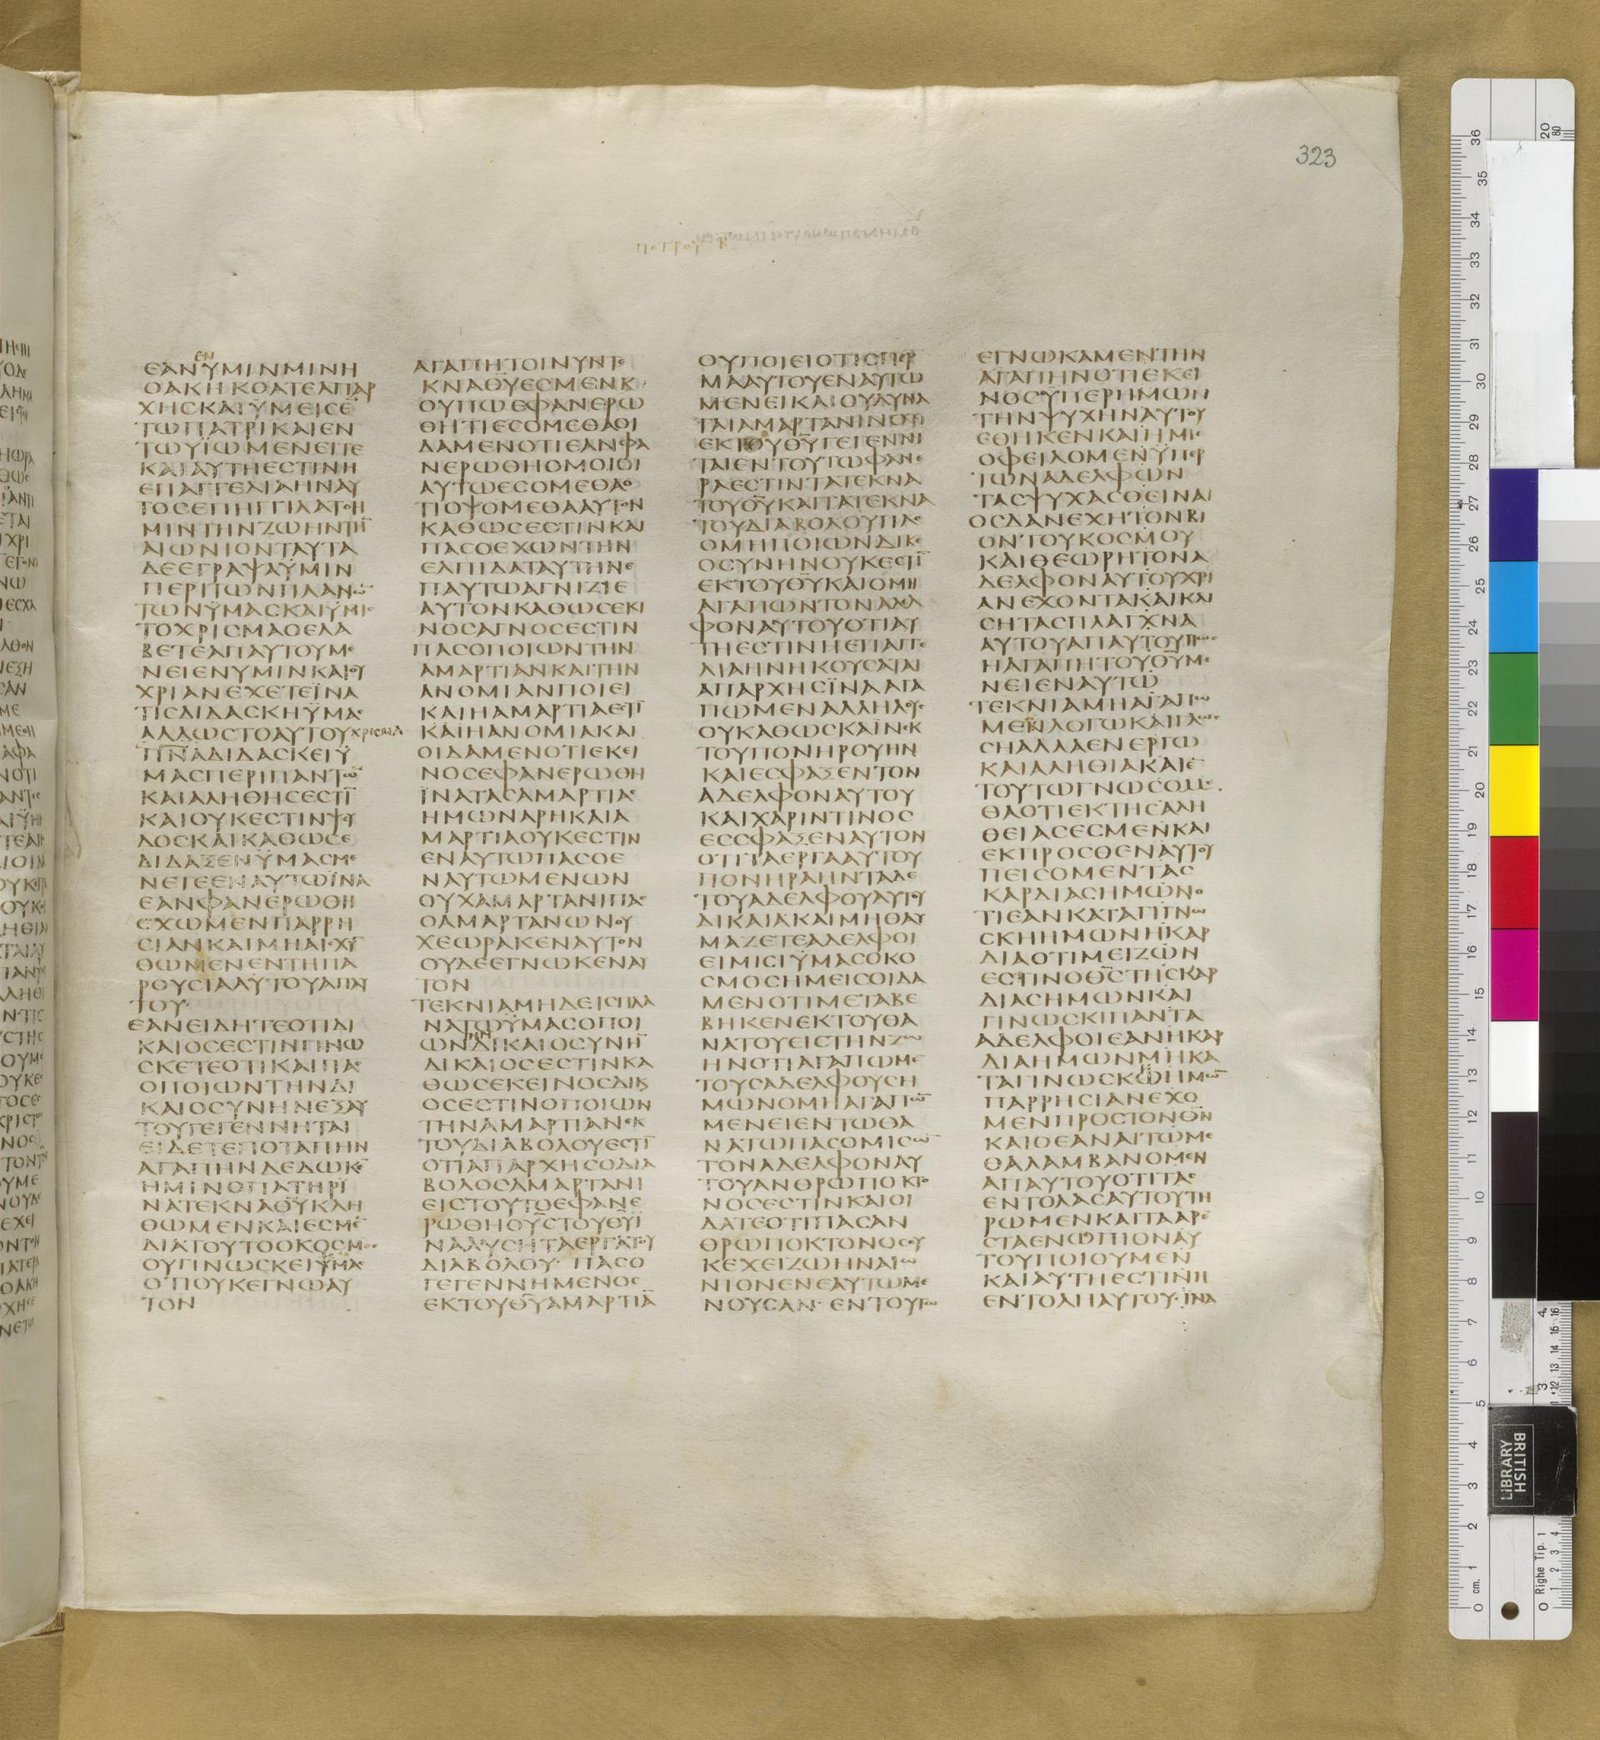 323
ΠΕΤΡΟΥ Β
ΕΝ
ΕΑΝΫΜΙΝΜΙΝΗ
ΟΑΚΗΚΟΑΤΕΑΠΑΡ
ΧΗϹΚΑΙΫΜΕΙϹΕ̅
ΤΩΠΑΤΡΙΚΑΙΕΝ
ΤΩΫΪΩΜΕΝΕΙΤΕ
ΚΑΙΑΥΤΗΕϹΤΙΝΗ
ΕΠΑΓΓΕΛΙΑΗΝΑΥ
ΤΟϹΕΠΗΓΓΙΛΑΤΟΗ
ΜΙΝΤΗΝΖΩΗΝΤΗ̅
ΑΙΩΝΙΟΝΤΑΥΤΑ
ΔΕΕΓΡΑΨΑΫΜΙΝ
ΠΕΡΙΤΩΝΠΛΑΝΩ̅
ΤΩΝΫΜΑϹΚΑΙΫΜΙϹ
ΤΟΧΡΙϹΜΑΟΕΛΑ
ΒΕΤΕΑΠΑΥΤΟΥΜΕ
ΝΕΙΕΝΥΜΙΝΚΑΙΟΥ
ΧΡΙΑΝΕΧΕΤΕΪΝΑ
ΤΙϹΔΙΔΑϹΚΗΫΜΑϹ
ΑΛΛΩϹΤΟΑΥΤΟΥΧΡΙϹΜΑ
Π̅Ν̅Α̅ΔΙΔΑϹΚΕΙΥ
ΜΑϹΠΕΡΙΠΑΝΤΩ̅
ΚΑΙΑΛΗΘΗϹΕϹΤΙ̅
ΚΑΙΟΥΚΕϹΤΙΝΨΕΥ
ΔΟϹΚΑΙΚΑΘΩϹΕ
ΔΙΔΑΞΕΝΫΜΑϹΜΕ
ΝΕΤΕΕΝΑΥΤΩΪΝΑ
ΕΑΝΦΑΝΕΡΩΘΗ
ϹΧΩΜΕΝΠΑΡΡΗ
ϹΙΑΝΚΑΙΜΗΑΙϹΧΥ̅
ΘΩΜΕΝΕΝΤΗΠΑ
ΡΟΥϹΙΑΑΥΤΟΥΑΠΑΥ
ΤΟΥ
ΕΑΝΕΙΔΗΤΕΟΤΙΔΙ
ΚΑΙΟϹΕϹΤΙΝΓΙΝΩ
ϹΚΕΤΕΟΤΙΚΑΙΠΑϹ
ΟΠΟΙΩΝΤΗΝΔΙ
ΚΑΙΟϹΥΝΗΝΕΞΑΥ
ΤΟΥΓΕΓΕΝΝΗΤΑΙ
ΕΙΔΕΤΕΠΟΤΑΠΗΝ
ΑΓΑΠΗΝΔΕΔΩΚΕ̅
ΗΜΙΝΟΠΑΤΗΡΪ
ΝΑΤΕΚΝΑΘ̅Υ̅ΚΛΗ
ΘΩΜΕΝΚΑΙΕϹΜΕ̅
ΔΙΑΤΟΥΤΟΟΚΟϹΜΟϹ
ΟΥΓΙΝΩϹΚΕΙΫΜΑϹ
ΟΤΙΟΥΚΕΓΝΩΑΥ
ΤΟΝ
ΑΓΑΠΗΤΟΙΝΥΝΤΕ
ΚΝΑΘ̅Υ̅ΕϹΜΕΝΚΑΙ
ΟΥΠΩΕΦΑΝΕΡΩ
ΘΗΤΙΕϹΟΜΕΘΑΟΙ
ΔΑΜΕΝΟΤΙΕΑΝΦΑ
ΝΕΡΩΘΗΟΜΟΙΟΙ
ΑΥΤΩΕϹΟΜΕΘΑΟ
ΤΙΟΨΟΜΕΘΑΑΥΤΟΝ
ΚΑΘΩϹΕϹΤΙΝΚΑΙ
ΠΑϹΟΕΧΩΝΤΗΝ
ΕΛΠΙΔΑΤΑΥΤΗΝΕ
ΠΑΥΤΩΑΓΝΙΖΙΕ
ΑΥΤΟΝΚΑΘΩϹΕΚΙ
ΝΟϹΑΓΝΟϹΕϹΤΙΝ
ΠΑϹΟΠΟΙΩΝΤΗΝ
ΑΜΑΡΤΙΑΝΚΑΙΤΗΝ
ΑΝΟΜΙΑΝΠΟΙΕΙ
ΚΑΙΗΑΜΑΡΤΙΑΕϹΤΙ̅
ΚΑΙΗΑΝΟΜΙΑΚΑΙ
ΟΙΔΑΜΕΝΟΤΙΕΚΕΙ
ΝΟϹΕΦΑΝΕΡΩΘΗ
ΪΝΑΤΑϹΑΜΑΡΤΙΑϹ
ΗΜΩΝΑΡΗΚΑΙΑ
ΜΑΡΤΙΑΟΥΚΕϹΤΙΝ
ΕΝΑΥΤΩΠΑϹΟΕ
ΝΑΥΤΩΜΕΝΩΝ
ΟΥΧΑΜΑΡΤΑΝΙΠΑϹ
ΟΑΜΑΡΤΑΝΩΝΟΥ
ΧΕΩΡΑΚΕΝΑΥΤΟΝ
ΟΥΔΕΕΓΝΩΚΕΝΑΥ
ΤΟΝ
ΤΕΚΝΙΑΜΗΔΕΙϹΠΛΑ
ΝΑΤΩΫΜΑϹΟΠΟΙ
ΩΝΔΙΚΑΙΟϹΥΝΗ̅
ΔΙΚΑΙΟϹΕϹΤΙΝΚΑ
ΘΩϹΕΚΕΙΝΟϹΔΙΚ
ΟϹΕϹΤΙΝΟΠΟΙΩΝ
ΤΗΝΑΜΑΡΤΙΑΝΕΚ
ΤΟΥΔΙΑΒΟΛΟΥΕϹΤΙ̅
ΟΤΙΑΠΑΡΧΗϹΟΔΙΑ
ΒΟΛΟϹΑΜΑΡΤΑΝΙ
ΕΙϹΤΟΥΤΟΕΦΑΝΕ
ΡΩΘΗΟΥ̅Ϲ̅ΤΟΥΘ̅Υ̅Ϊ
ΝΑΛΥϹΗΤΑΕΡΓΑΤΟΥ
ΔΙΑΒΟΛΟΥ· ΠΑϹΟ
ΓΕΓΕΝΝΗΜΕΝΟϹ
ΕΚΤΟΥΘ̅Υ̅ΑΜΑΡΤΙΑ̅
ΟΥΠΟΙΕΙΟΤΙϹΠΕΡ
ΜΑΑΥΤΟΥΕΝΑΥΤΩ
ΜΕΝΕΙΚΑΙΟΥΔΥΝΑ
ΤΑΙΑΜΑΡΤΑΝΙΝΟΤΙ
ΕΚΤΟΥΘ̅Υ̅ΓΕΓΕΝΝΗ
ΤΑΙΕΝΤΟΥΤΩΦΑΝΕ
ΡΑΕϹΤΙΝΤΑΤΕΚΝΑ
ΤΟΥΘ̅Υ̅ΚΑΙΤΑΤΕΚΝΑ
ΤΟΥΔΙΑΒΟΛΟΥΠΑϹ
ΟΜΗΠΟΙΩΝΔΙΚΑΙ
ΟϹΥΝΗΝΟΥΚΕϹΤΙ̅
ΕΚΤΟΥΘ̅Υ̅ΚΑΙΟΜΗ
ΑΓΑΠΩΝΤΟΝΑΔΕΛ
ΦΟΝΑΥΤΟΥΟΤΙΑΥ
ΤΗΕϹΤΙΝΗΕΠΑΓΓΕ
ΛΙΑΗΝΗΚΟΥϹΑΤΑΙ
ΑΠΑΡΧΗϹΪΝΑΑΓΑ
ΠΩΜΕΝΑΛΛΗΛΟΥϹ
ΟΥΚΑΘΩϹΚΑΪΝΕΚ
ΤΟΥΠΟΝΗΡΟΥΗΝ
ΚΑΙΕϹΦΑΞΕΝΤΟΝ
ΑΔΕΛΦΟΝΑΥΤΟΥ
ΚΑΙΧΑΡΙΝΤΙΝΟϹ
ΕϹϹΦΑΞΕΝΑΥΤΟΝ
ΟΤΙΤΑΕΡΓΑΑΥΤΟΥ
ΠΟΝΗΡΑΗΝΤΑΔΕ
ΤΟΥΑΔΕΛΦΟΥΑΥΤΟΥ
ΔΙΚΑΙΑΚΑΙΜΗΘΑΥ
ΜΑΖΕΤΕΑΔΕΛΦΟΙ
ΕΙΜΙϹΙΫΜΑϹΟΚΟ
ϹΜΟϹΗΜΕΙϹΟΙΔΑ
ΜΕΝΟΤΙΜΕΤΑΒΕ
ΒΗΚΕΝΕΚΤΟΥΘΑ
ΝΑΤΟΥΕΙϹΤΗΝΖΩ
ΗΝΟΤΙΑΓΑΠΩΜΕ̅
ΤΟΥϹΑΔΕΛΦΟΥϹΗ
ΜΩΝΟΜΗΑΓΑΠΩ̅
ΜΕΝΕΙΕΝΤΩΘΑ
ΝΑΤΩΠΑϹΟΜΙϹΩ̅
ΤΟΝΑΔΕΛΦΟΝΑΥ
ΤΟΥΑΝΘΡΩΠΟΚΤΟ
ΝΟϹΕϹΤΙΝΚΑΙΟΙ
ΔΑΤΕΟΤΙΠΑϹΑΝ
ΘΡΩΠΟΚΤΟΝΟϹΟΥ
ΚΕΧΕΙΖΩΗΝΑΙΩ
ΝΙΟΝΕΝΕΑΥΤΩΜΕ
ΝΟΥϹΑΝ· ΕΝΤΟΥΤΩ
ΕΓΝΩΚΑΜΕΝΤΗΝ
ΑΓΑΠΗΝΟΤΙΕΚΕΙ
ΝΟϹΥΠΕΡΗΜΩΝ
ΤΗΝΨΥΧΗΝΑΥΤΟΥ
ΕΘΗΚΕΝΚΑΙΗΜΙϹ
ΟΦΕΙΛΟΜΕΝΫΠΕΡ
ΤΩΝΑΔΕΛΦΩΝ
ΤΑϹΨΥΧΑϹΘΕΙΝΑΙ
ΟϹΔΑΝΕΧΗΤΟΝΒΙ
ΟΝΤΟΥΚΟϹΜΟΥ
ΚΑΙΘΕΩΡΗΤΟΝΑ
ΔΕΛΦΟΝΑΥΤΟΥΧΡΙ
ΑΝΕΧΟΝΤΑΚΑΙΚΛΙ
ϹΗΤΑϹΠΛΑΓΧΝΑ
ΑΥΤΟΥΑΠΑΥΤΟΥΠΩϹ
ΗΑΓΑΠΗΤΟΥΘ̅Υ̅ΜΕ
ΝΕΙΕΝΑΥΤΩ
ΤΕΚΝΙΑΜΗΑΓΑΠΩ
ΜΕΝΛΟΓΩΚΑΙΓΛΩϹ
ϹΗΑΛΛΑΕΝΕΡΓΩ
ΚΑΙΑΛΗΘΙΑΚΑΙΕ̅
ΤΟΥΤΩΓΝΩϹΟΜΕ
ΘΑΟΤΙΕΚΤΗϹΑΛΗ
ΘΕΙΑϹΕϹΜΕΝΚΑΙ
ΕΚΠΡΟϹΘΕΝΑΥΤΟΥ
ΠΕΙϹΟΜΕΝΤΑϹ
ΚΑΡΔΙΑϹΗΜΩΝΟ
ΤΙΕΑΝΚΑΤΑΓΙΓΝΩ
ϹΚΗΗΜΩΝΗΚΑΡ
ΔΙΑΟΤΙΜΕΙΖΩΝ
ΕϹΤΙΝΟΘ̅Ϲ̅ΤΗϹΚΑΡ
ΔΙΑϹΗΜΩΝΚΑΙ
ΓΙΝΩϹΚΙΠΑΝΤΑ
ΑΔΕΛΦΟΙΕΑΝΗΚΑΡ
ΔΙΑΗΜΩΝΜΗΚΑ
ΤΑΓΙΝΩϹΚΩΗΜΩ̅
ΠΑΡΡΗϹΙΑΝΕΧΟ
ΜΕΝΠΡΟϹΤΟΝΘ̅Ν̅
ΚΑΙΟΕΑΝΑΙΤΩΜΕ
ΘΑΛΑΜΒΑΝΟΜΕΝ
ΑΠΑΥΤΟΥΟΤΙΤΑϹ
ΕΝΤΟΛΑϹΑΥΤΟΥΤΗ
ΡΩΜΕΝΚΑΙΤΑΑΡΕ
ϹΤΑΕΝΩΠΙΟΝΑΥ
ΤΟΥΠΟΙΟΥΜΕΝ
ΚΑΙΑΥΤΗΕϹΤΙΝΗ
ΕΝΤΟΛΗΑΥΤΟΥ·ΪΝΑ
BRITISH
LIBRARY